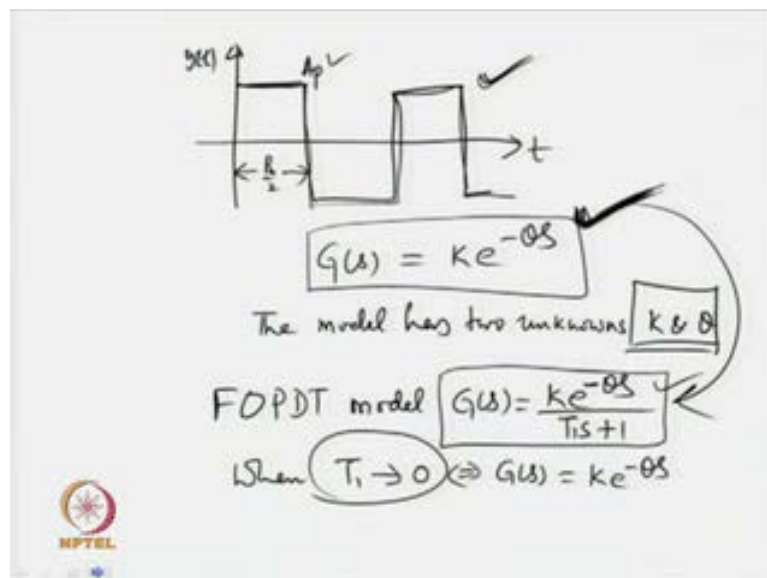 y(t)
Ap ✓
Pu/2
t
G(s) = Ke^-θs
The model has two unknowns K & θ
FOPDT model G(s) = Ke^-θs / T1s+1
When T1 → 0 ⇔ G(s) = Ke^-θs
NPTEL